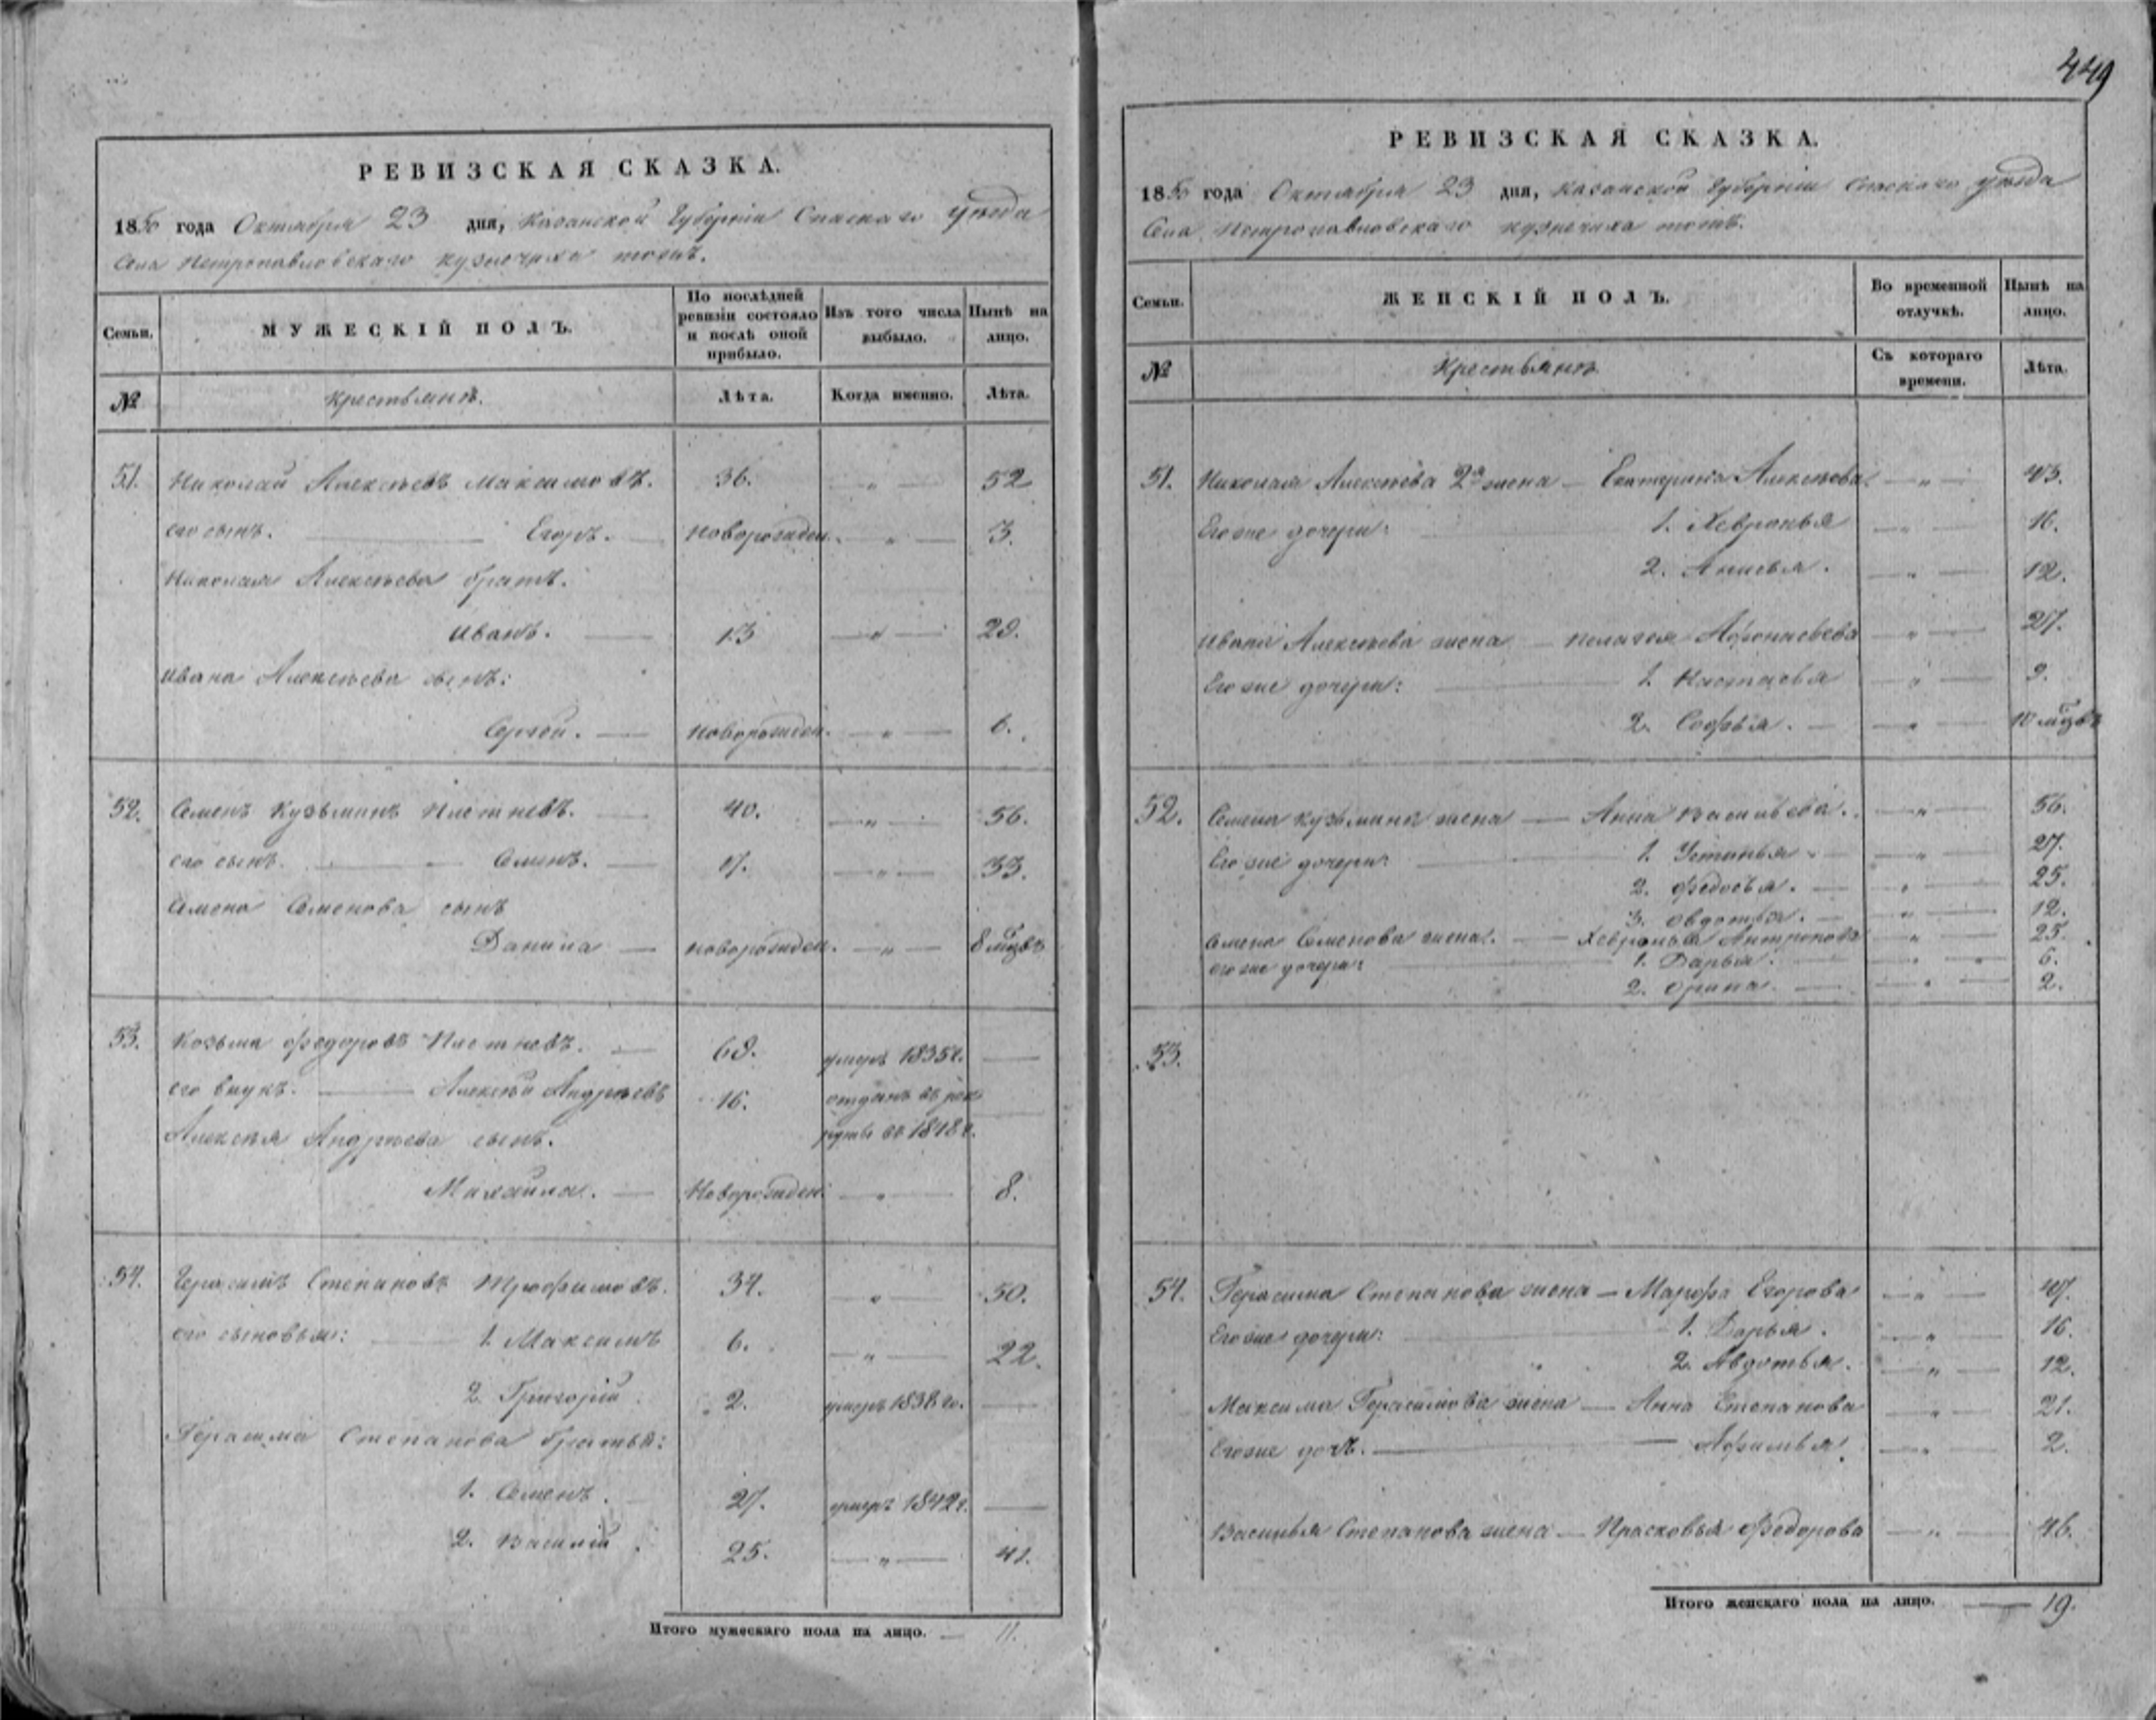 449
РЕВИЗСКАЯ СКАЗКА.
1850 года Октября 23 дня, Казанской Губернiи Спаскаго уѣзда
Села Петропавловскаго кузнечиха тожъ.
Семьи. МУЖЕСКIЙ ПОЛЪ. По послѣдней ревизiи состояло и послѣ оной прибыло. Изъ того числа выбыло. Нынѣ на лицо.
№ Крестьянъ. Лѣта. Когда именно. Лѣта.
51. Николай Алексѣевъ Максимовъ. 36. — „ — 52
его сынъ. — Егоръ. — новорожден. — „ — 3.
Николая Алексѣева братъ.
Иванъ. — 13 — „ — 29.
Ивана Алексѣева сынъ:
Сергей. — новорожден. — „ — 6.
52. Семенъ Кузьминъ Плетневъ. — 40. — „ — 56.
его сынъ. — Семенъ. — 17. — „ — 33.
Семена Семенова сынъ
Данила — новорожден. — „ — 8 мцвъ
53. Козьма Федоровъ Плетневъ. — 69. умеръ 1835г. —
его внукъ. — Алексѣй Андрѣевъ 16. отданъ въ рек
руты въ 1848г. —
Алексѣя Андрѣева сынъ.
Михайла. — Новорожден. — „ — 8.
54. Герасимъ Степановъ Трофимовъ. 34. — „ — 50.
его сыновья: — 1. Максимъ 6. — „ — 22.
2. Григорiй 2. умеръ 1838 го. —
Герасима Степанова братья:
1. Семенъ. — 27. умеръ 1842г. —
2. Василiй. 25. — „ — 41.
Итого мужескаго пола на лицо. — 11.
РЕВИЗСКАЯ СКАЗКА.
1850 года Октября 23 дня, Казанской Губернiи Спаскаго уѣзда
Села Петропавловскаго кузнечиха тожъ.
Семьи. ЖЕНСКIЙ ПОЛЪ. Во временной отлучкѣ. Нынѣ на лицо.
№ Крестьянъ Съ котораго времени. Лѣта.
51. Николая Алексѣева 2я жена — Екатерина Алексѣева. — „ — 43.
Его же дочери: — 1. Хевронья — „ — 16.
2. Анисья. — „ — 12.
Ивана Алексѣева жена — Пелагея Афонасьева — „ — 27.
Его же дочери: — 1. Настасья — „ — 9.
2. Софья. — „ — 10 мцвъ
52. Семена Кузьмина жена — Анна Васильева. — „ — 56.
Его же дочери: — 1. Устинья — „ — 27.
2. Федосья. — „ — 25.
3. Овдотья. — „ — 12.
Семена Семенова жена. — Хевронья Антропова — „ — 25.
его же дочери: — 1. Дарья. — „ — 6.
2. Орина. — „ — 2.
53.
54. Герасима Степанова жена — Марфа Егорова — „ — 47.
Его же дочери: — 1. Дарья. — „ — 16.
2. Авдотья. — „ — 12.
Максима Герасимова жена — Анна Степанова — „ — 21.
Его же дочь. — Афимья. — „ — 2.
Василья Степанова жена — Прасковья Федорова — „ — 46.
Итого женскаго пола на лицо. — 19.